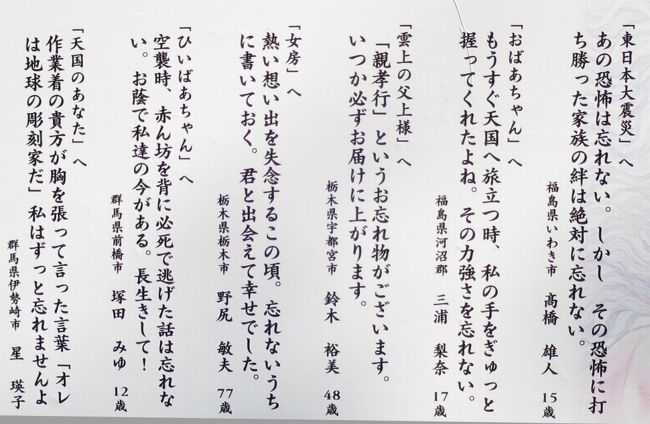 「東日本大震災」へ
あの恐怖は忘れない。しかし　その恐怖に打
ち勝った家族の絆は絶対に忘れない。
福島県いわき市　髙橋　雄人　15歳
「おばあちゃん」へ
もうすぐ天国へ旅立つ時、私の手をぎゅっと
握ってくれたよね。その力強さを忘れない。
福島県河沼郡　三浦　梨奈　17歳
「雲上の父上様」へ
「親孝行」というお忘れ物がございます。
いつか必ずお届けに上がります。
栃木県宇都宮市　鈴木　裕美　48歳
「女房」へ
熱い想い出を失念するこの頃。忘れないうち
に書いておく。君と出会えて幸せでした。
栃木県栃木市　野尻　敏夫　77歳
「ひいばあちゃん」へ
空襲時、赤ん坊を背に必死で逃げた話は忘れな
い。お蔭で私達の今がある。長生きして！
群馬県前橋市　塚田　みゆ　12歳
「天国のあなた」へ
作業着の貴方が胸を張って言った言葉「オレ
は地球の彫刻家だ」私はずっと忘れませんよ
群馬県伊勢崎市　星　瑛子